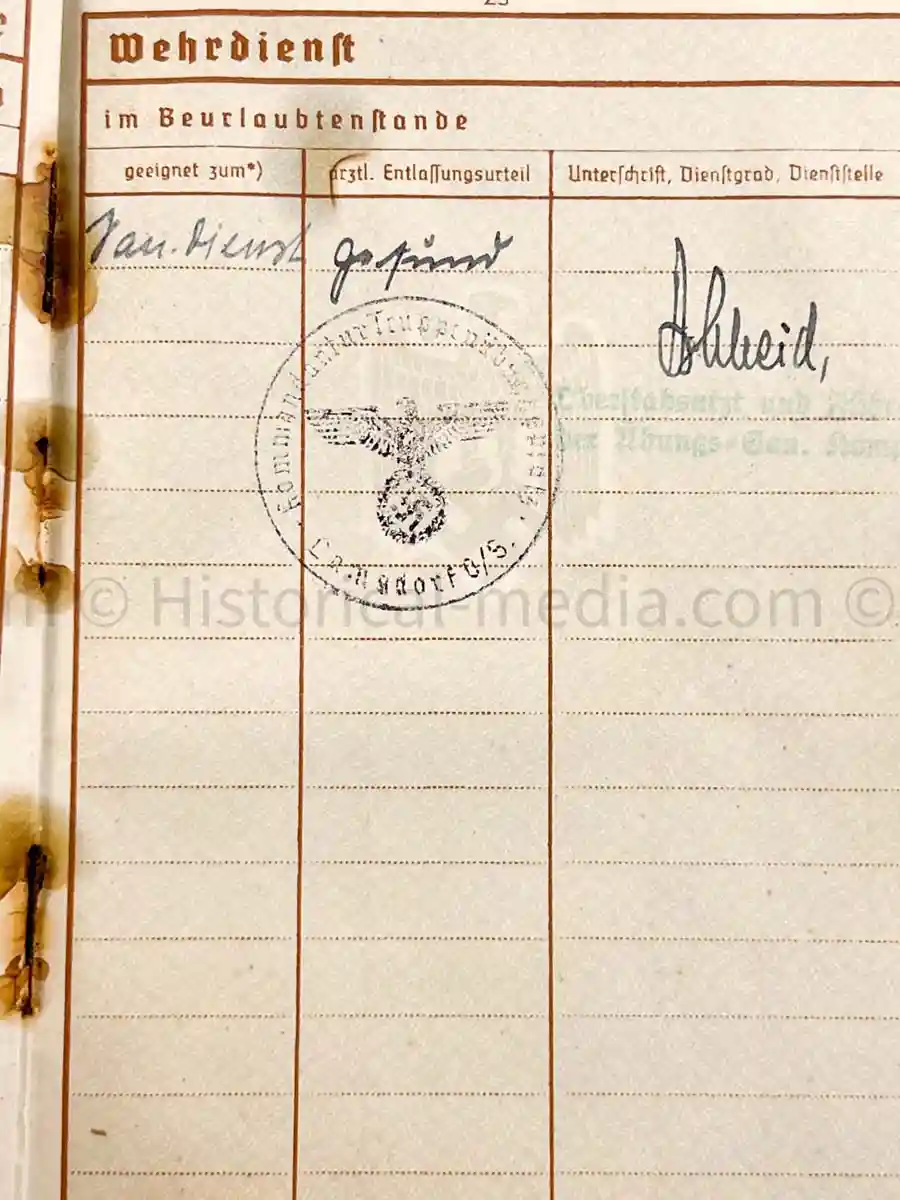 23
Wehrdienst
im Beurlaubtenstande
geeignet zum*)
ärztl. Entlassungsurteil
Unterschrift, Dienstgrad, Dienststelle
San. Dienst
gesund
Kommandantur Truppenübungsplatz
Lamsdorf O/S.
Oberstabsarzt und
der Übungs-San. Komp
© Historical-media.com ©